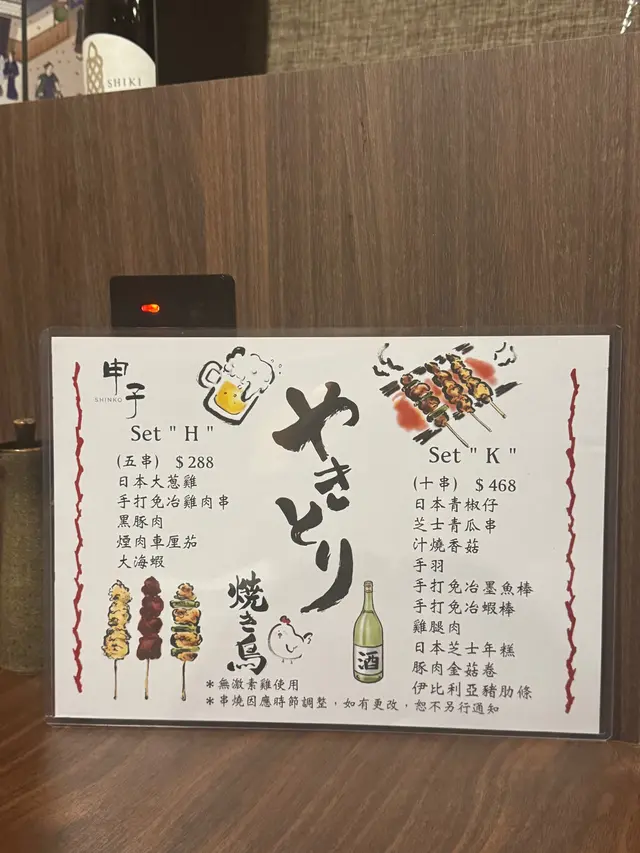 SHIKI
申子
SHINKO
Set " H "
(五串) $288
日本大葱雞
手打免冶雞肉串
黑豚肉
煙肉車厘茄
大海蝦
やきとり
焼き鳥
酒
Set " K "
(十串) $468
日本青椒仔
芝士青瓜串
汁燒香菇
手羽
手打免冶墨魚棒
手打免冶蝦棒
雞腿肉
日本芝士年糕
豚肉金菇卷
伊比利亞豬肋條
*無激素雞使用
*串燒因應時節調整，如有更改，恕不另行通知